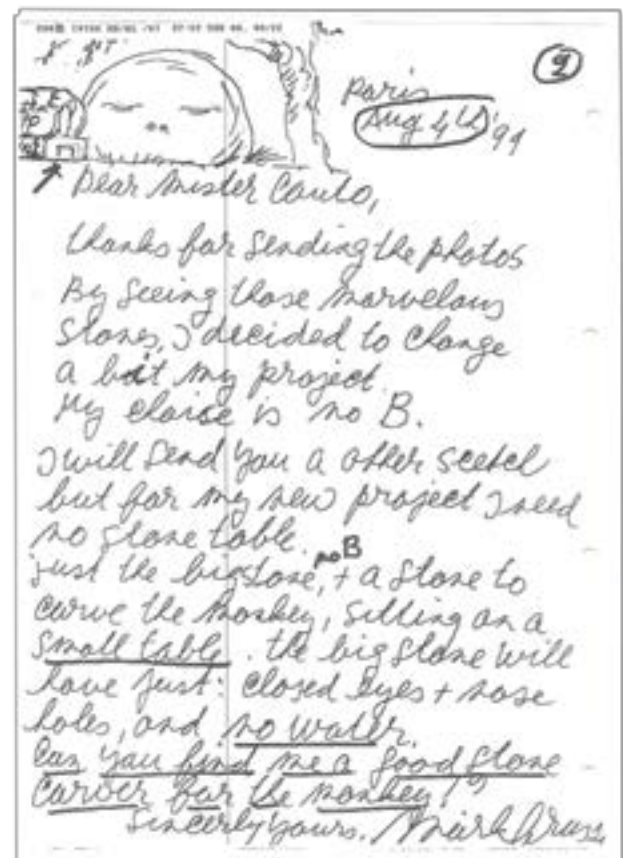 2
Paris
Aug 4th '94
Dear Mister Couto,
thanks for sending the photos
By seeing those marvelous
stones, I decided to change
a bit my project.
My choise is no B.
I will send you a other scetch
but for my new project I need
no stone table.
just the bigstone, no B + a stone to
carve the monkey, sitting on a
small table. the big stone will
have just: closed eyes + nose
holes, and no water.
Can you find me a good stone
carver for the monkey!?
Sincerly yours.